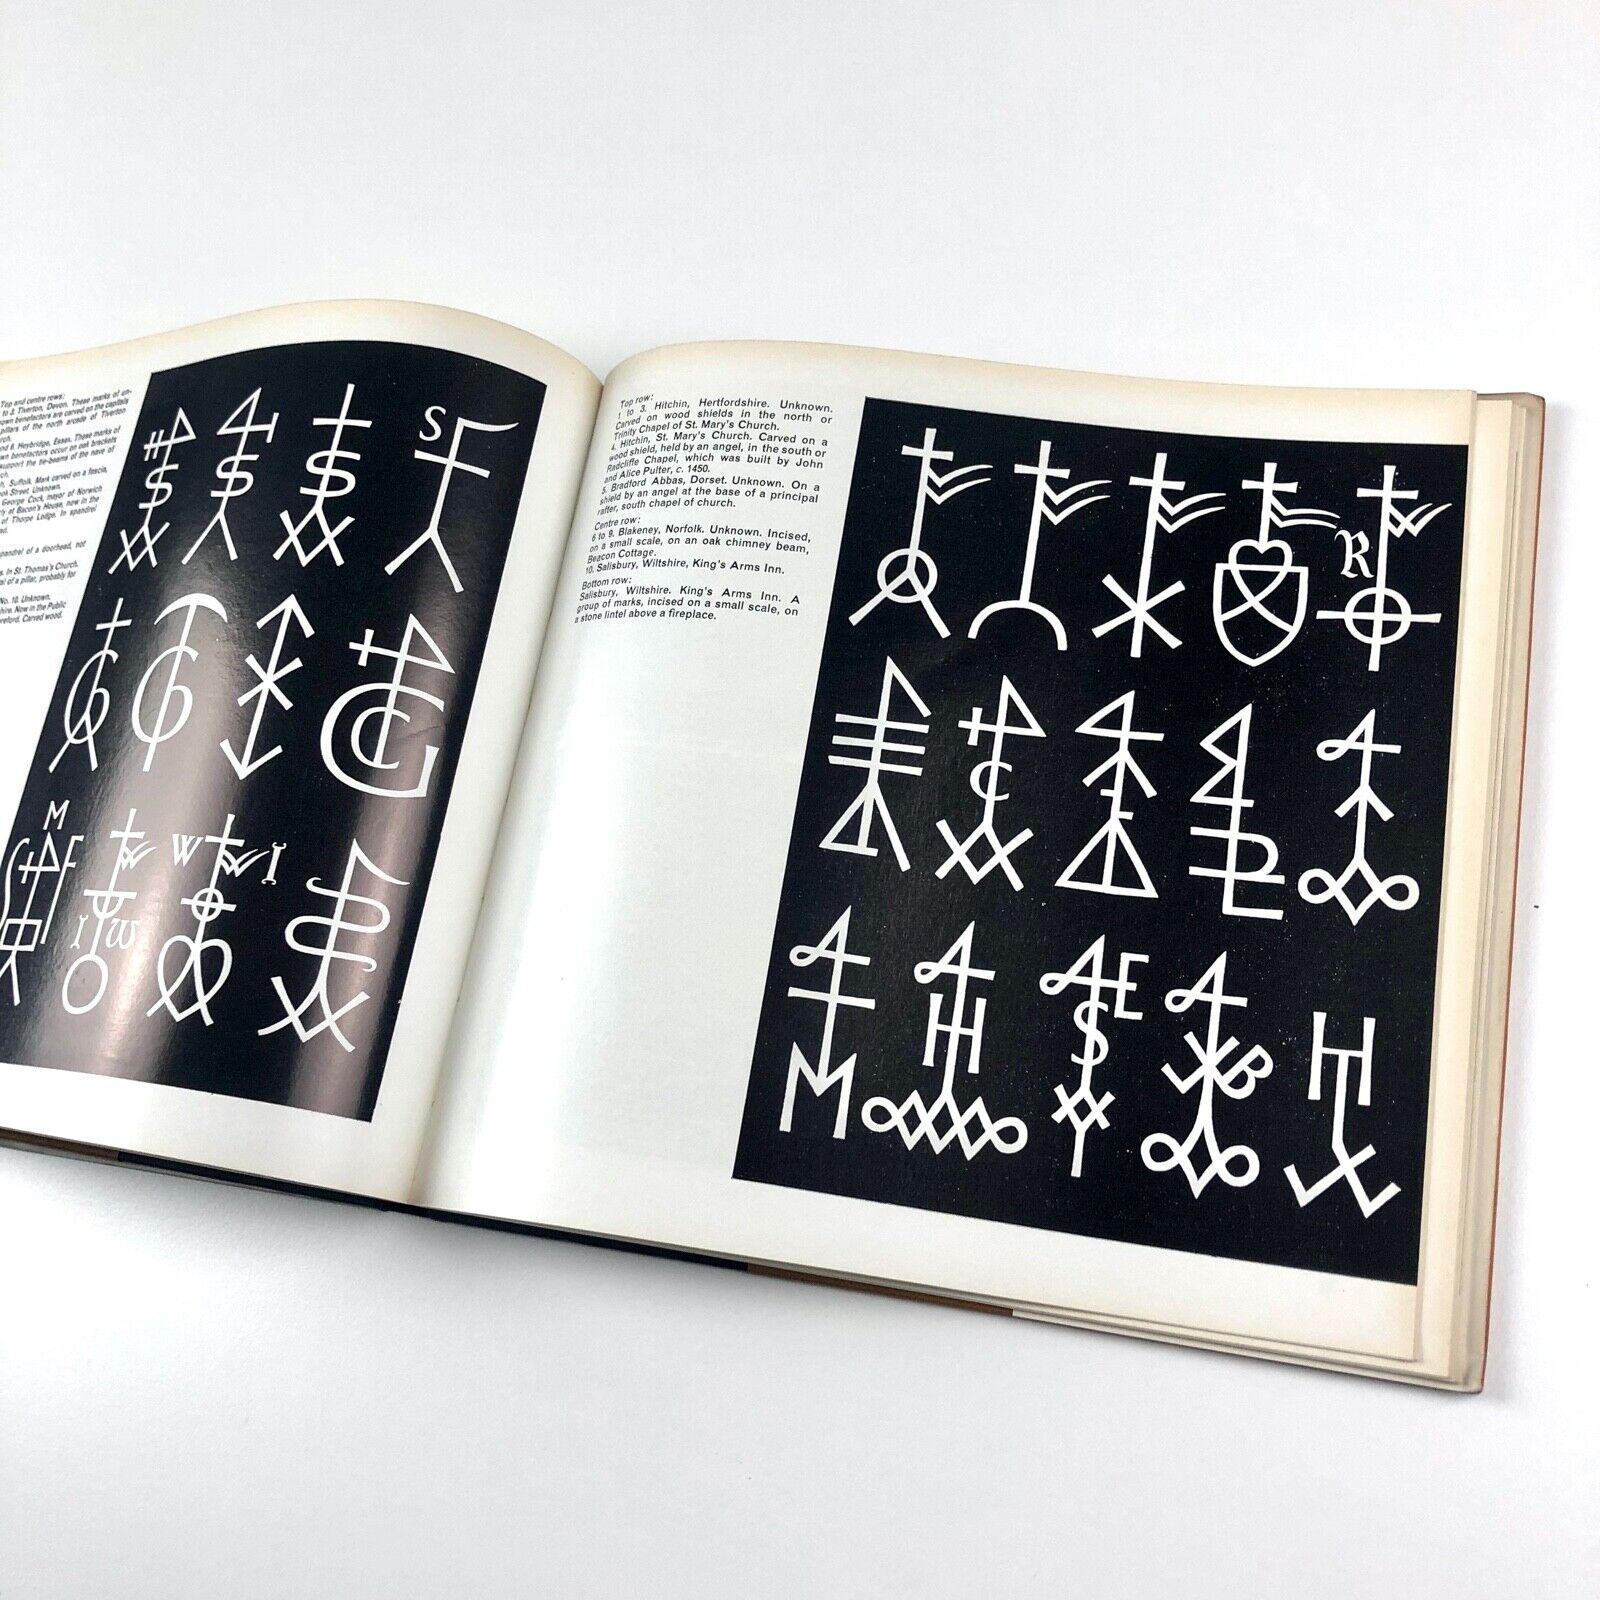 Top and centre rows:
to 3. Tiverton, Devon. These marks of un-
own benefactors are carved on the capitals
pillars of the north arcade of Tiverton
rch.
and 6. Heybridge, Essex. These marks of
own benefactors occur on oak brackets
support the tie-beams of the nave of
ch.
h, Suffolk. Mark carved on a fascia,
ook Street. Unknown.
George Cock, mayor of Norwich
rly at Bacon's House, now in the
of Thorpe Lodge. In spandrel
ad.
pandrel of a doorhead, not
s. In St. Thomas's Church.
al of a pillar, probably for
No. 10. Unknown.
hire. Now in the Public
ereford. Carved wood.
S
S S S
G G
G C
M
S F
I W
W I
Top row:
1 to 3. Hitchin, Hertfordshire. Unknown.
Carved on wood shields in the north or
Trinity Chapel of St. Mary's Church.
4. Hitchin, St. Mary's Church. Carved on a
wood shield, held by an angel, in the south or
Radcliffe Chapel, which was built by John
and Alice Pulter, c. 1450.
5. Bradford Abbas, Dorset. Unknown. On a
shield by an angel at the base of a principal
rafter, south chapel of church.
Centre row:
6 to 9. Blakeney, Norfolk. Unknown. Incised,
on a small scale, on an oak chimney beam,
Beacon Cottage.
10. Salisbury, Wiltshire, King's Arms Inn.
Bottom row:
Salisbury, Wiltshire. King's Arms Inn. A
group of marks, incised on a small scale, on
a stone lintel above a fireplace.
R
C
E
H S B H
M